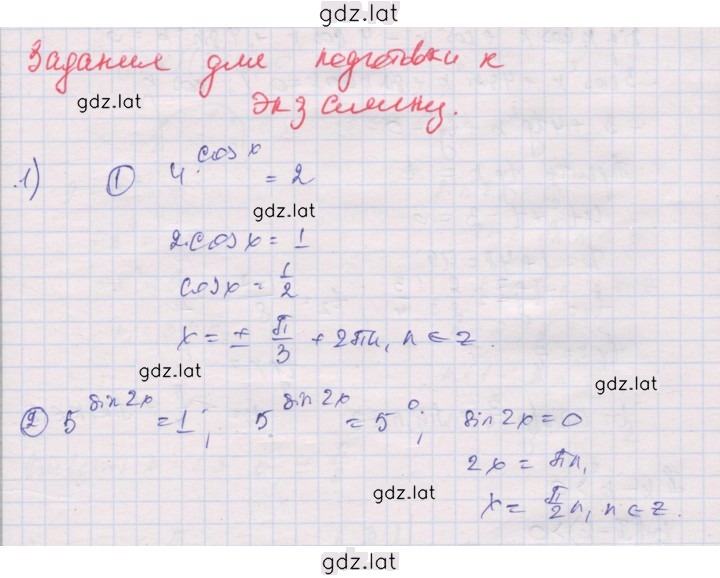 gdz.lat
Задания для подготовки к
gdz.lat
экзамену.
1) ① 4^cos x = 2
gdz.lat
2·cos x = 1
cos x = 1/2
x = ± π/3 + 2πn, n ∈ z.
gdz.lat
gdz.lat
② 5^sin 2x = 1; 5^sin 2x = 5^0; sin 2x = 0
2x = πn,
gdz.lat
x = π/2 n, n ∈ z.
gdz.lat